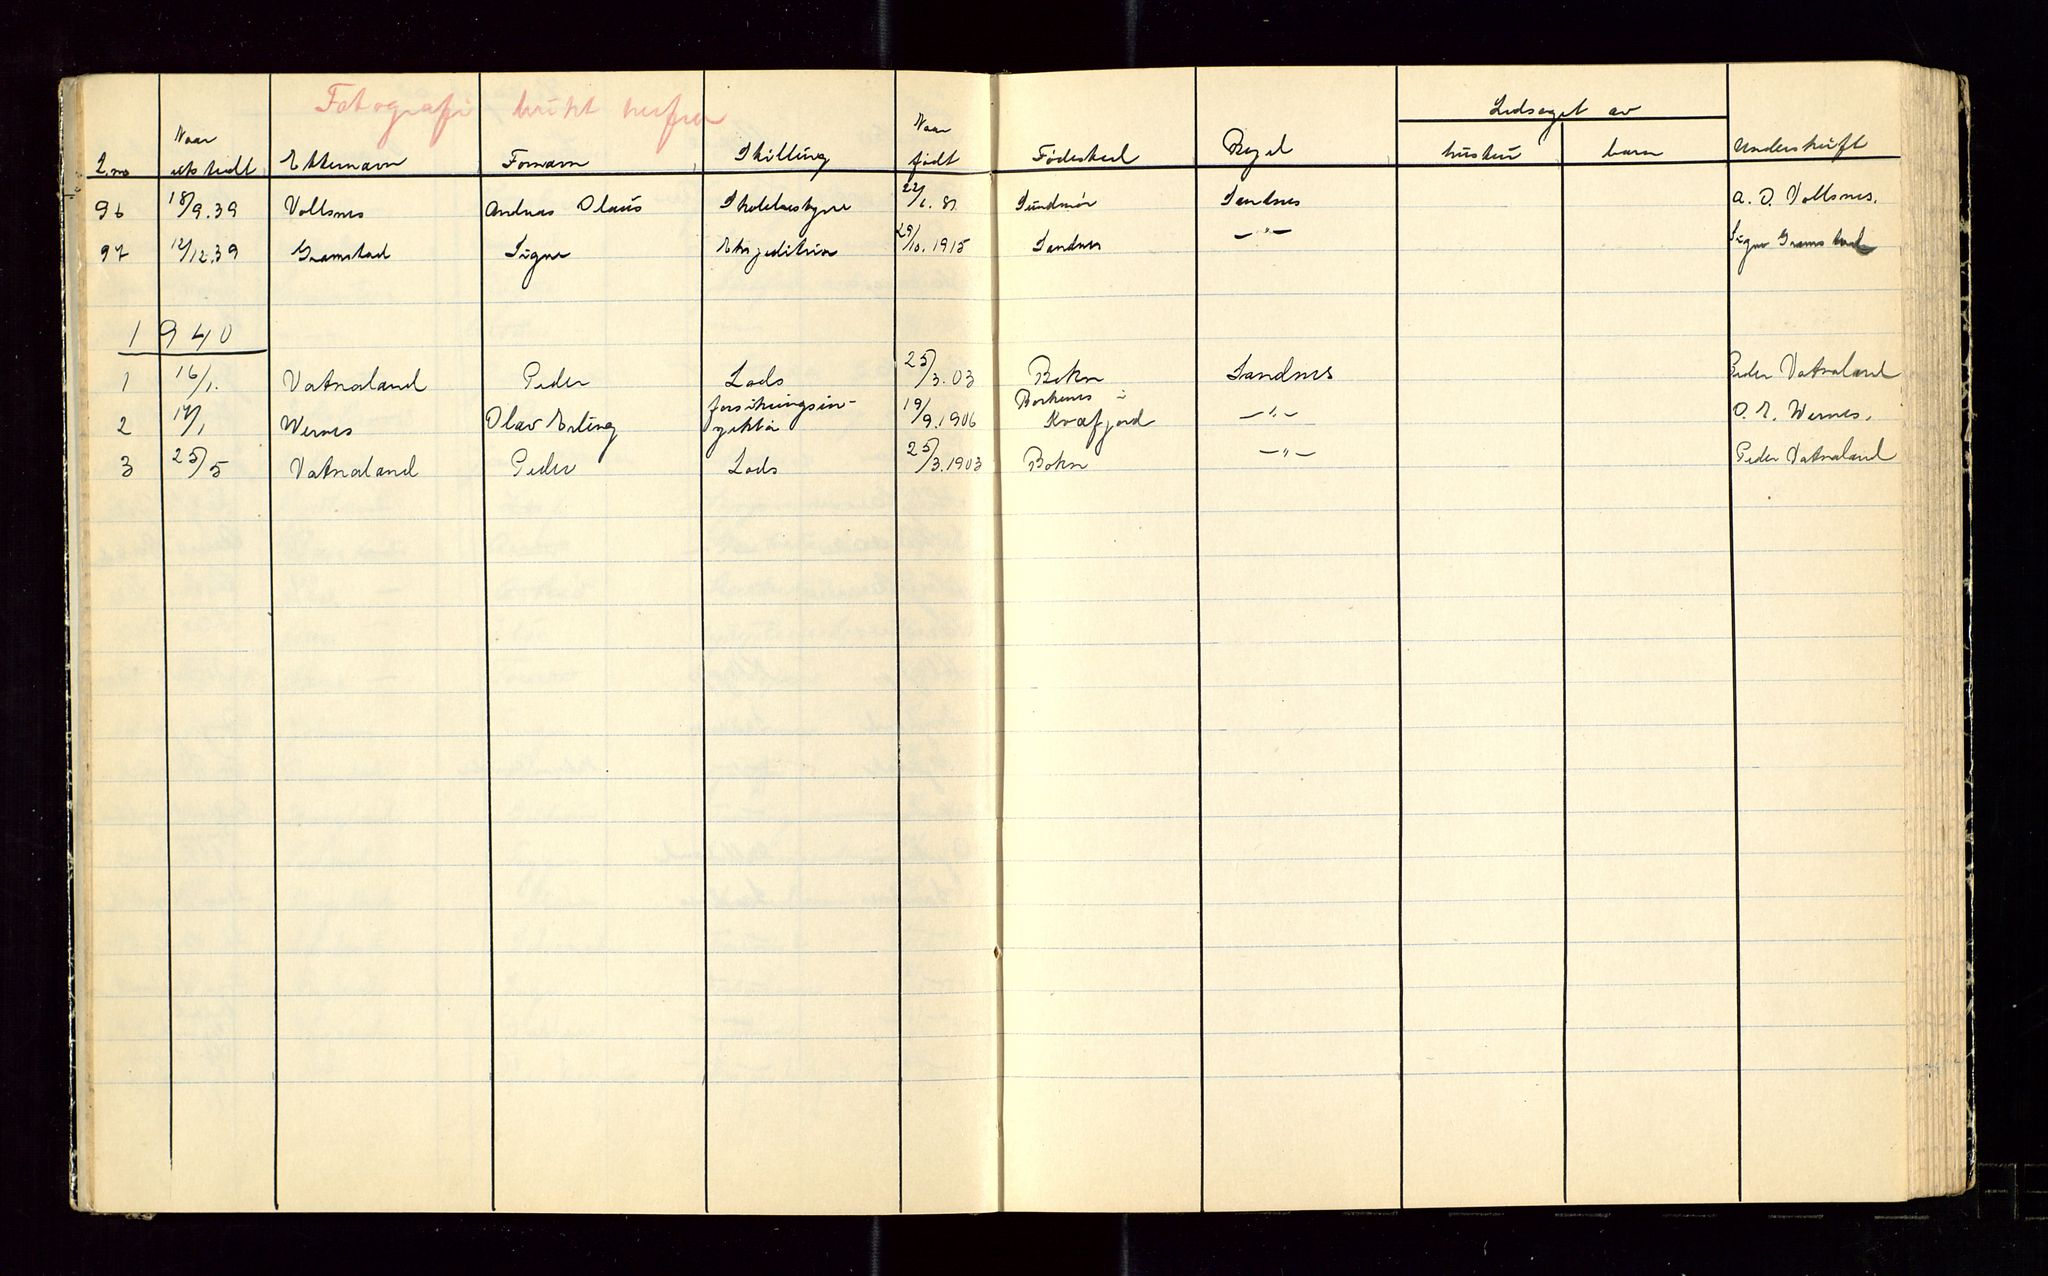 Fotografi brukt herfra
L.no Naar utstedt Etternavn Fornavn Stilling Naar født Fødested Bopel Ledsaget av hustru barn Underskrift
96 18/9.39 Vollsnes Andreas Olaus Skolebestyrer 22/1.81 Sundmør Sandnes A. O. Vollsnes.
97 12/12.39 Gramstad Signe Ekspeditrise 29/10.1915 Sandnes —"— Signe Gramstad
1940
1 16/1. Vatnaland Peder Lods 25/3.03 Bokn Sandnes Peder Vatnaland
2 17/1 Wernes Olav Erling forsikringsin-
spektør 19/9.1906 Borkenes i
Kvæfjord —"— O. E. Wernes.
3 25/5 Vatnaland Peder Lods 25/3.1903 Bokn —"— Peder Vatnaland